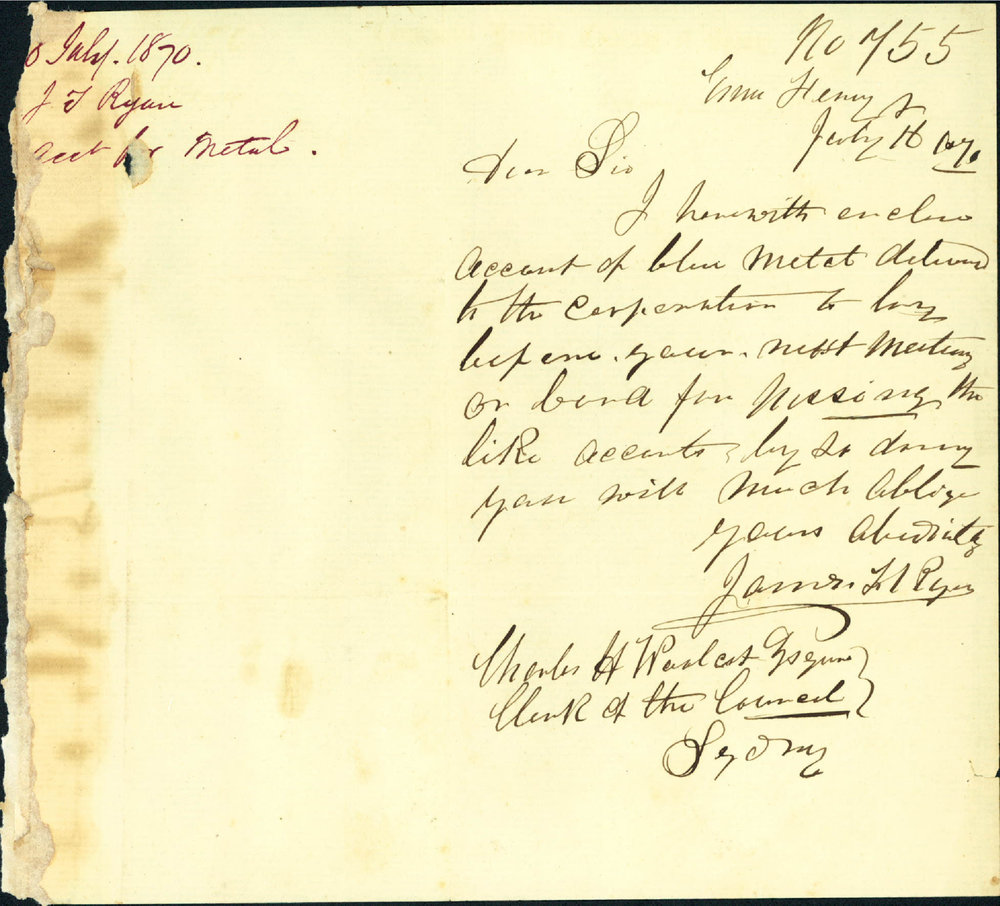 8 July. 1870.
J F Ryan
acct for Metal.
No 755
Emu Ferry
July 18 1870
Dear Sir
I herewith enclose
account of blue Metal delivered
to the Corporation to lay
before. your. next Meeting
or bord for passing the
like accounts, by so doing
you will much ablige
yours
James Ryan
Charles H Woolcott Esquire
Clerk of the Council
Sydney